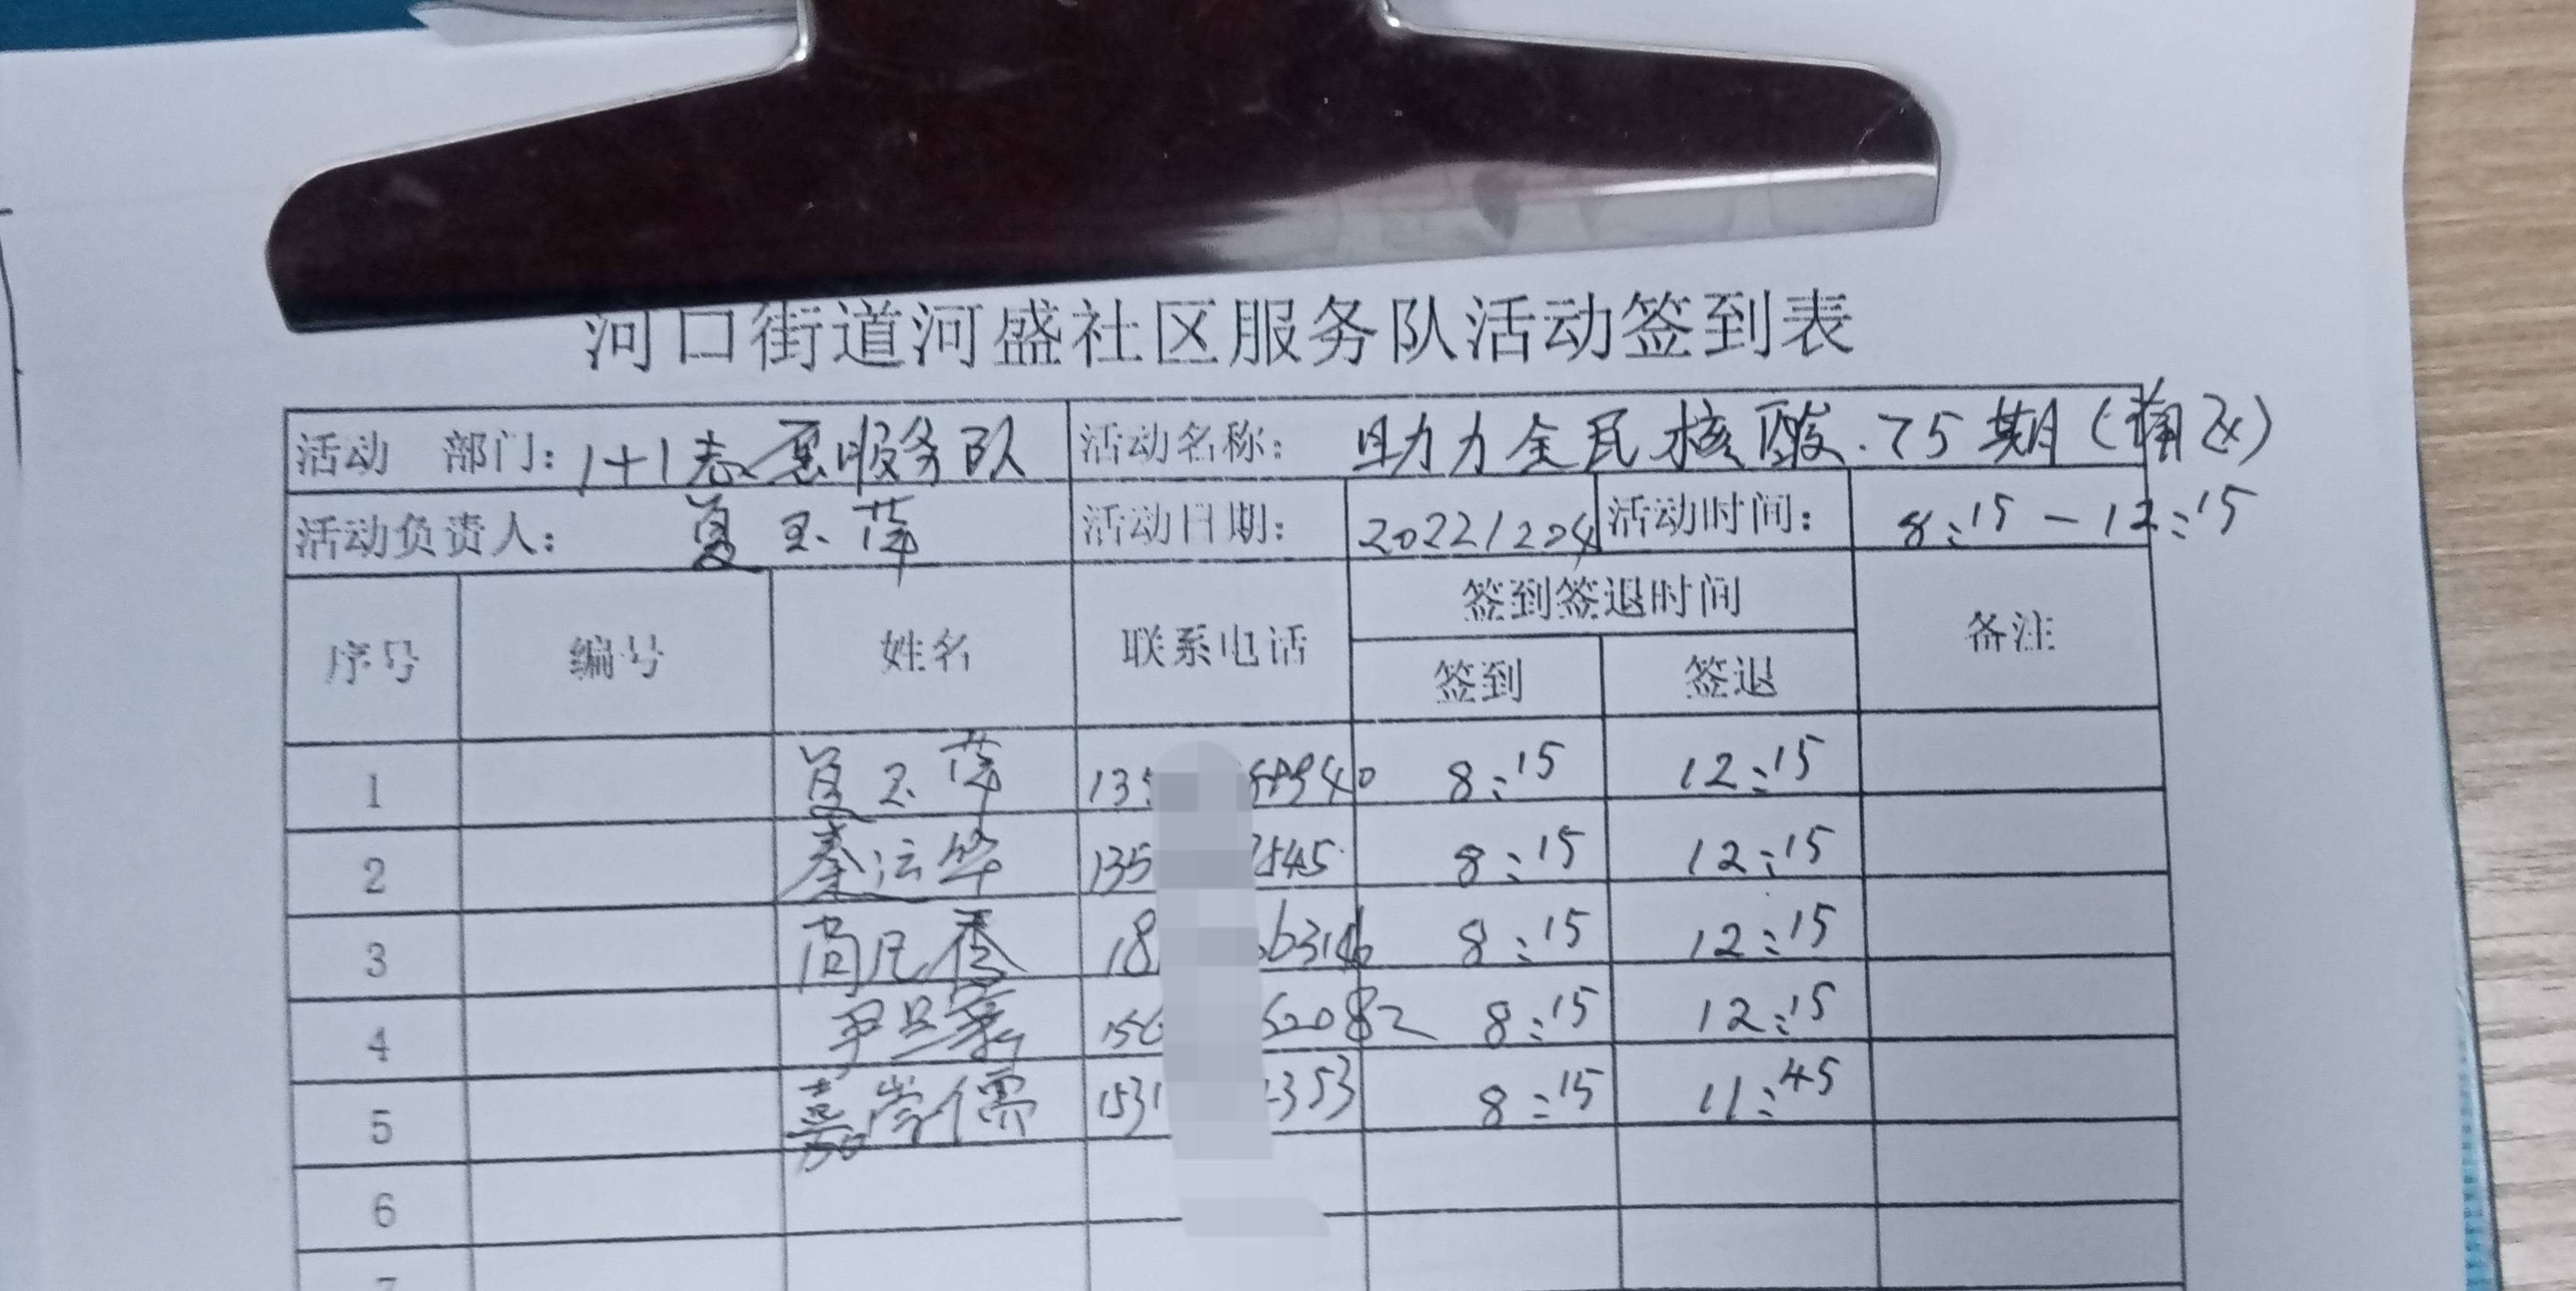 河口街道河盛社区服务队活动签到表
活动 部门: 1+1志愿服务队 活动名称: 助力全民核酸.75期(
活动负责人: 夏玉萍 活动日期: 20221204 活动时间: 8:15-12:15
序号 编号 姓名 联系电话 签到签退时间 备注
签到 签退
1 夏玉萍 135 940 8:15 12:15
2 秦运华 135 545 8:15 12:15
3 尚 香 18 6314 8:15 12:15
4 尹 156 2082 8:15 12:15
5 嘉 儒 1531 353 8:15 11:45
6